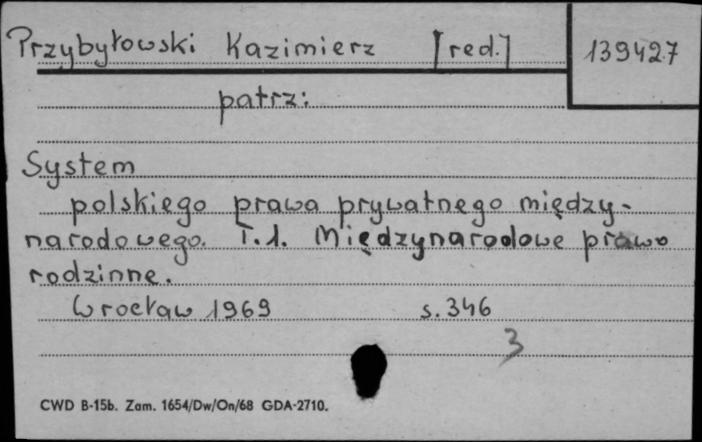 Przybyłowski Kazimierz [red.] 139427
patrz:
System
polskiego prawa prywatnego między-
narodowego. T.1. Międzynarodowe prawo
rodzinne.
Wrocław 1969 s. 346
3
CWD B-15b. Zam. 1654/Dw/On/68 GDA-2710.